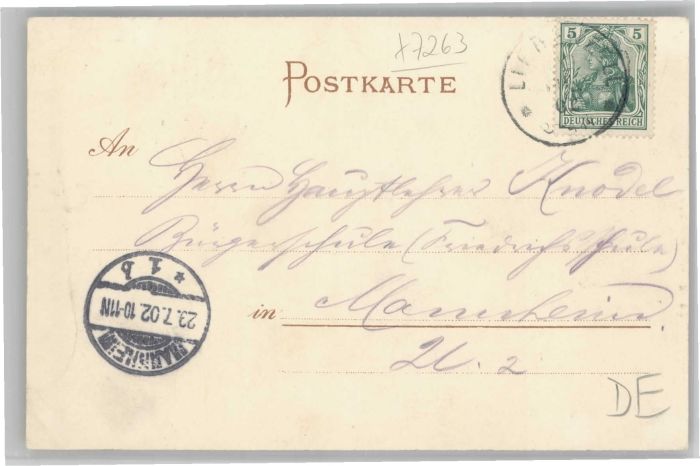 x7263
POSTKARTE
5 5
DEUTSCHES REICH
An
Herrn Hauptlehrer Knodel
Bürgerschule (Friedrichsschule)
in Mannheim
U. 2
MANNHEIM
23.7.02. 10-11N
* 1 b
DE